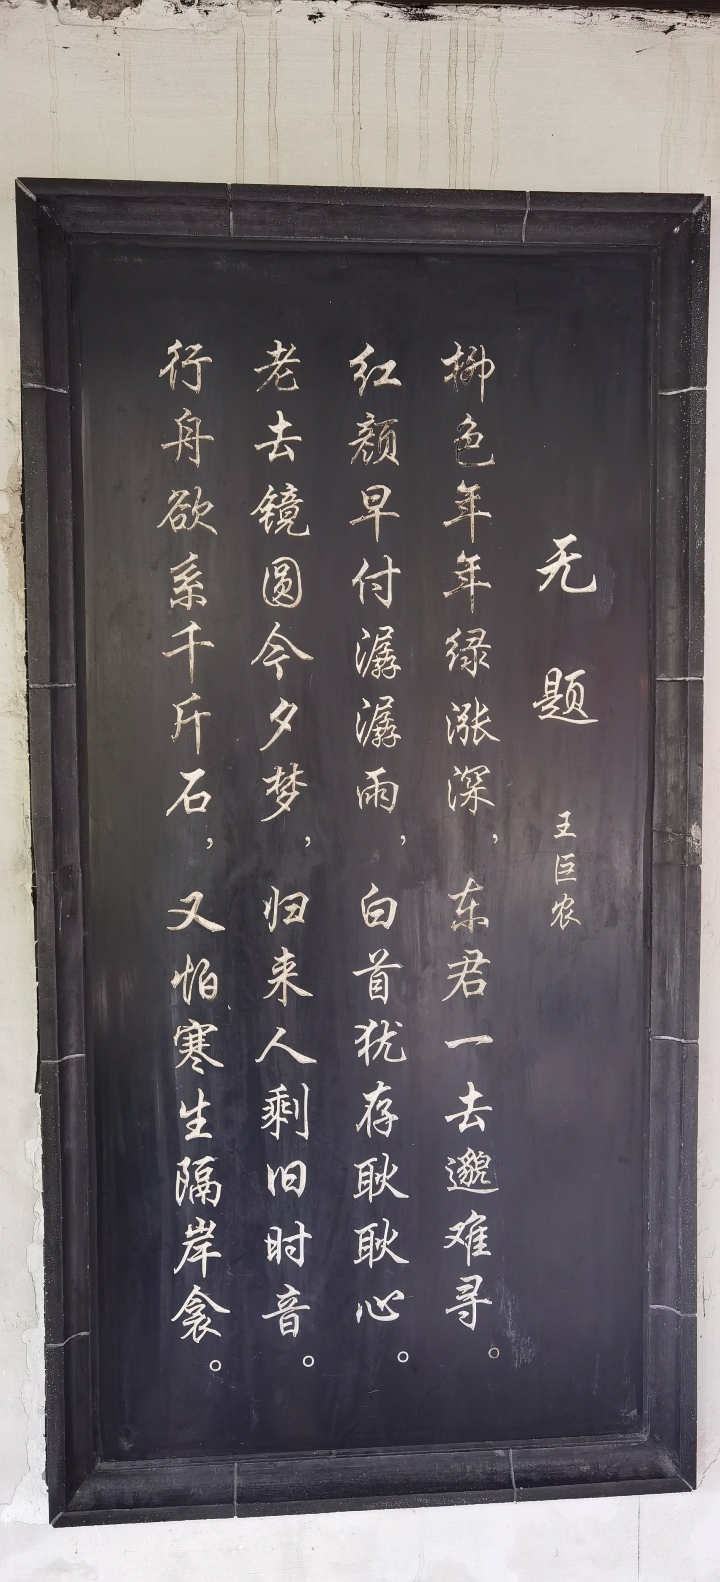 无题
王巨农
柳色年年绿涨深，东君一去邈难寻。
红颜早付潺潺雨，白首犹存耿耿心。
老去镜圆今夕梦，归来人剩旧时音。
行舟欲系千斤石，又怕寒生隔岸衾。